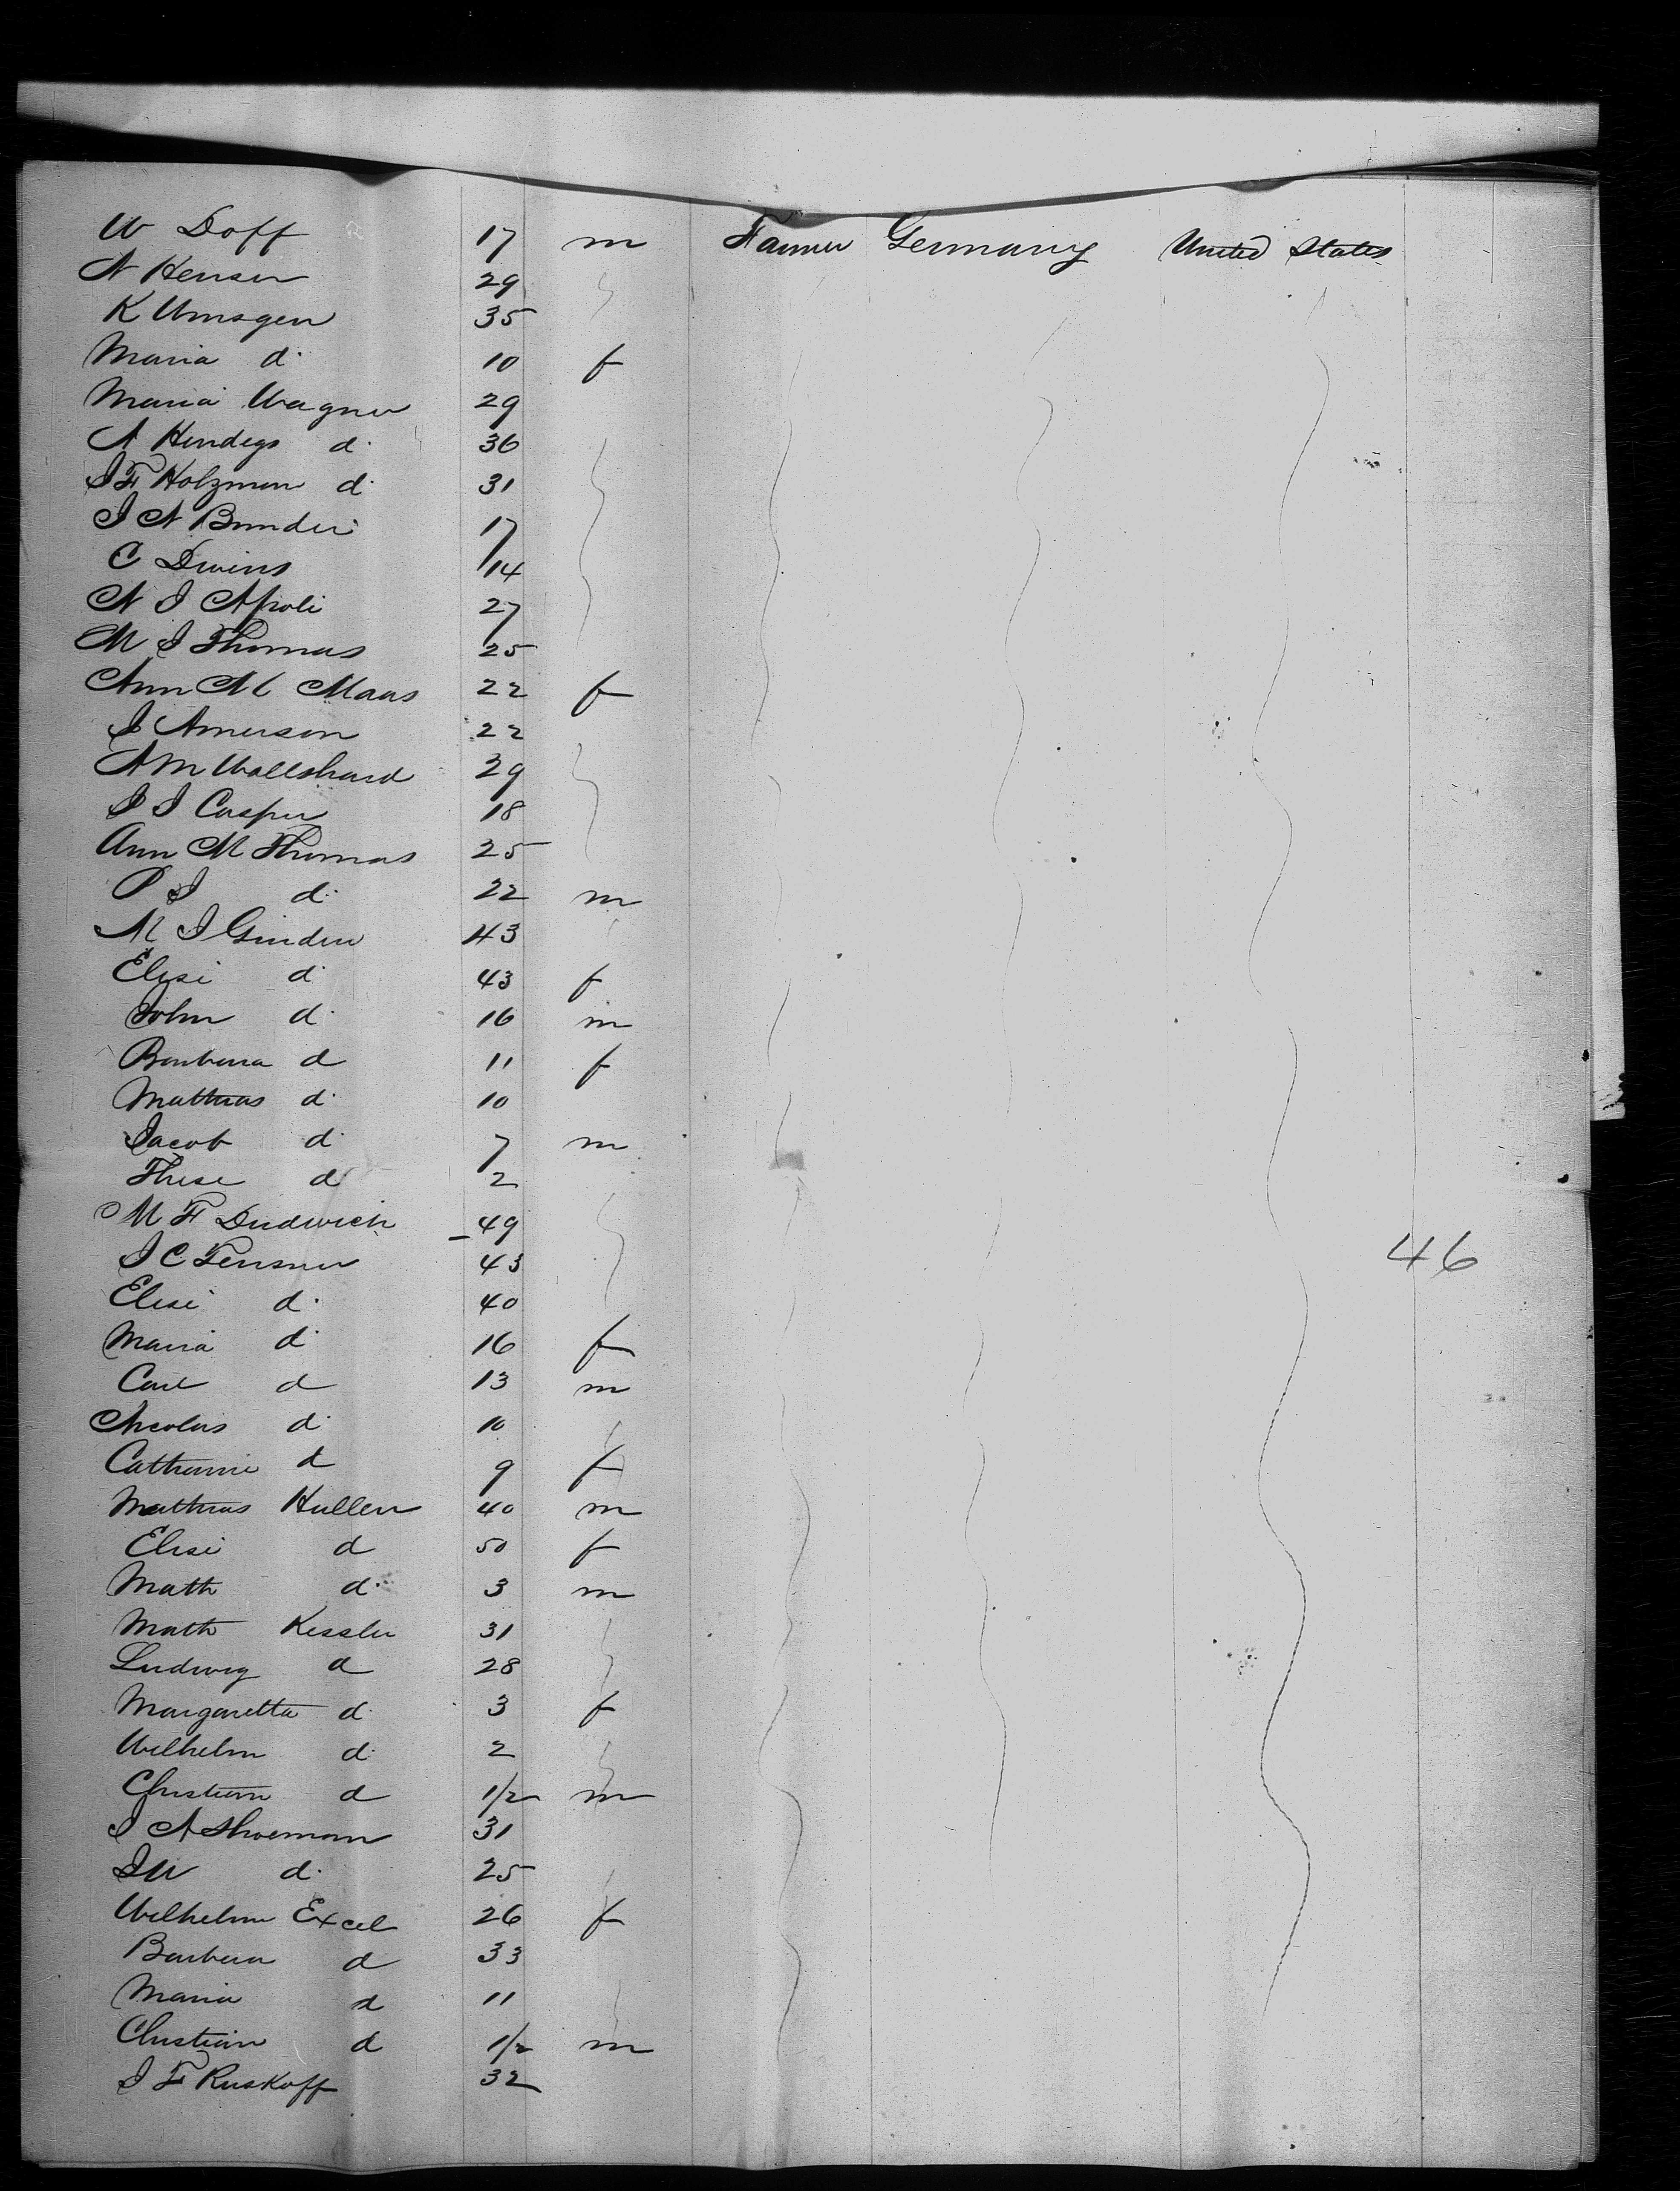 W Doff 17 m Farmer Germany United States
N Henser 29
K Umsgen 35
Maria d. 10 f
Maria Wagner 29
A Hendegs d. 36
I F Holzman d. 31
I A Bunder 17
C Divins 14
N I Apoli 27
M I Thomas 25
Ann M Maas 22 f
I Amerson 22
A M Wallshard 29
I I Casper 18
Ann M Thomas 25
P I d. 22 m
M I Ginder 43
Elisi d. 43 f
John d. 16 m
Barbara d 11 f
Mathias d. 10
Jacob d. 7 m
These d 2
M F Dudwich 49
I C Tensner 43
Elisi d. 40
Maria d. 16 f
Carl d 13 m
Nicolas d. 10
Catharine d 9 f
Mathias Hullen 40 m
Elisi d 50 f
Math d. 3 m
Math Kessler 31
Ludwig d 28
Margaretta d. 3 f
Wilhelm d. 2
Christian d 1/2 m
I A Shoeman 31
I W d. 25
Wilhelm Excel 26 f
Barbera d 33
Maria d 11
Christian d 1/2 m
I F Ruskoff 32
46